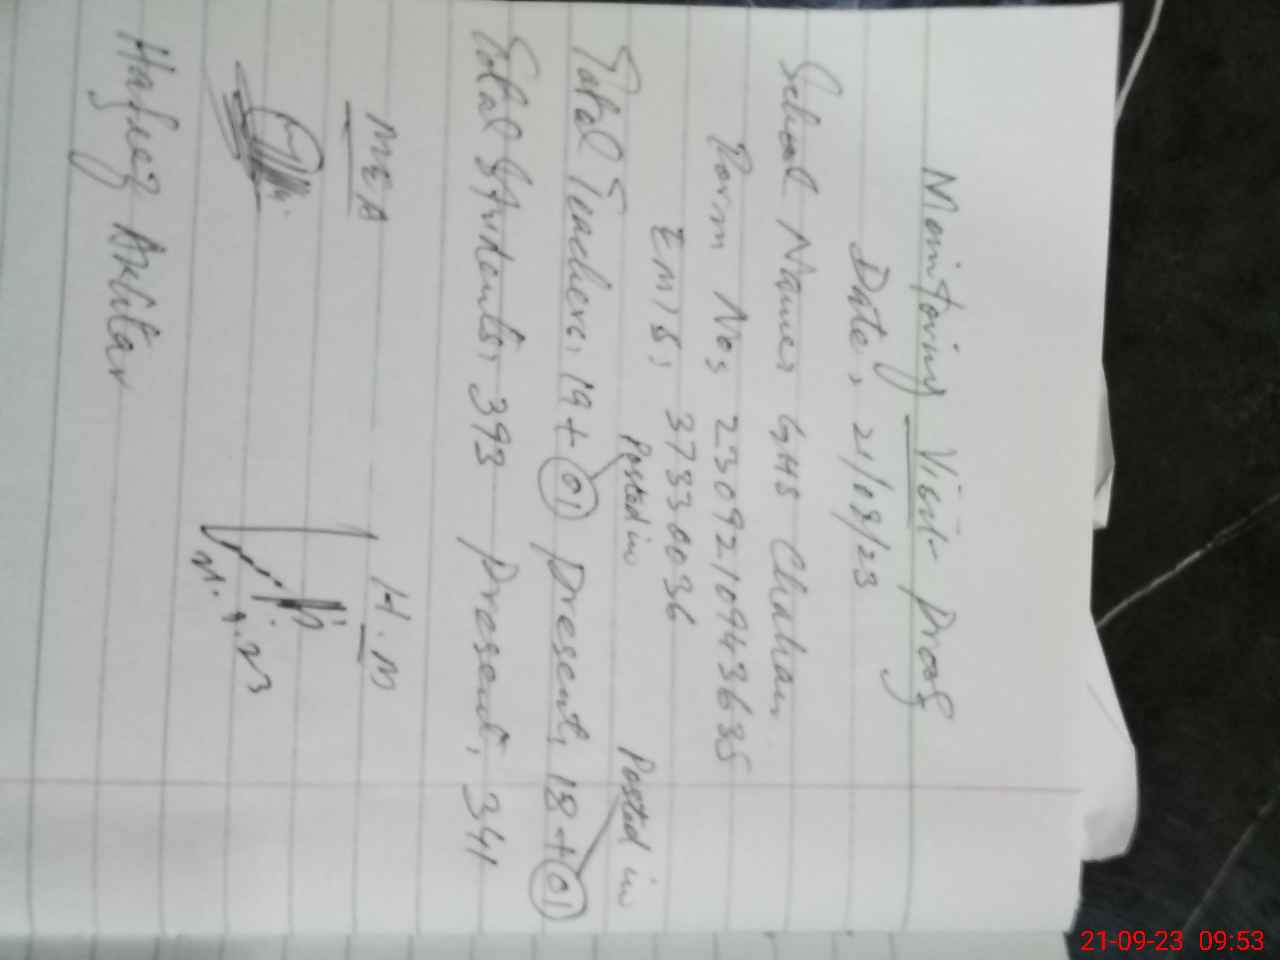 Monitoring Visit Proof
Date, 21/09/23
School Name: GHS Chahan
Form No: 23092109443635
EMIS, 37330036
Posted in Posted in
Total Teachers, 19 + 01 Present, 18 + 01
Total Students, 393 Present, 341
MEA H.M
21.9.23
Hafeez Akhtar
21-09-23 09:53